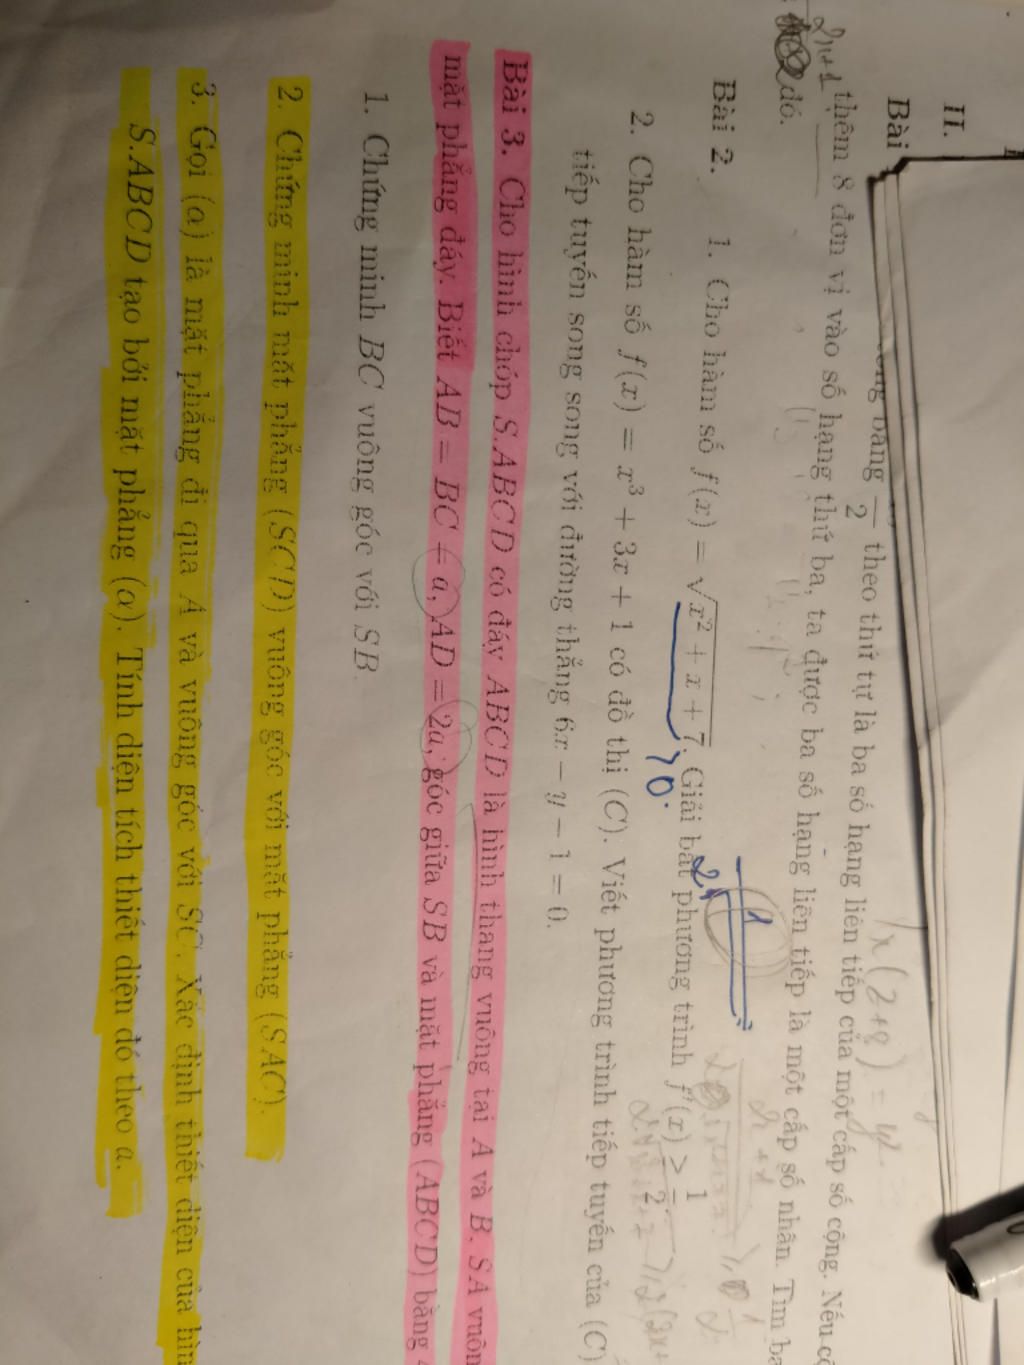 II.
Bài
2 theo thứ tự là ba số hạng liên tiếp của một cấp số cộng. Nếu
thêm 8 đơn vị vào số hạng thứ ba, ta được ba số hạng liên tiếp là một cấp số nhân. Tìm ba
đó.
2n+1
x(2+8) = y.
Bài 2. 1. Cho hàm số f(x) = √x² + x + 7. Giải bất phương trình f'(x) ≥ 1/2.
>0.
2. Cho hàm số f(x) = x³ + 3x + 1 có đồ thị (C). Viết phương trình tiếp tuyến của (C)
tiếp tuyến song song với đường thẳng 6x − y − 1 = 0.
Bài 3. Cho hình chóp S.ABCD có đáy ABCD là hình thang vuông tại A và B. SA
mặt phẳng đáy. Biết AB = BC = a, AD = 2a, góc giữa SB và mặt phẳng (ABCD) bằng
1. Chứng minh BC vuông góc với SB.
2. Chứng minh mặt phẳng (SCD) vuông góc với mặt phẳng (SAC).
3. Gọi (α) là mặt phẳng đi qua A và vuông góc với SC. Xác định thiết diện của
S.ABCD tạo bởi mặt phẳng (α). Tính diện tích thiết diện đó theo a.